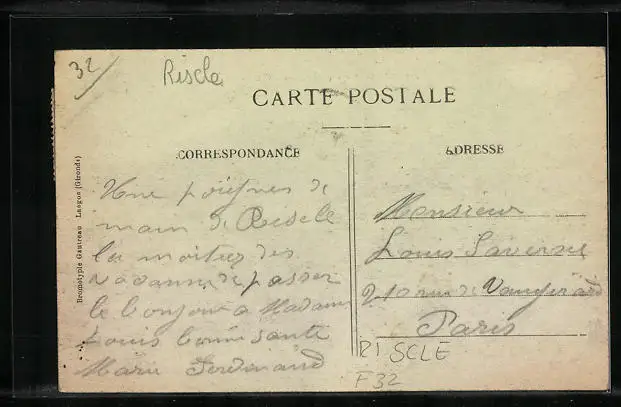 32
Riscle
CARTE POSTALE
CORRESPONDANCE
ADRESSE
Bromotypie Gautreau Langon (Gironde)
Une poignes de
main de Riscle
la moitier des
de passer
le bonjour a Madame
Louis bonne sante
Marie Ferdinand
Monsieur
Louis Laverne
210 rue de Vaugirard
Paris
RISCLE
F32